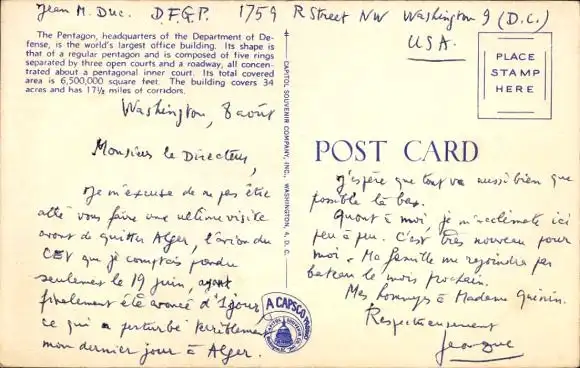 Jean M. Duc. D.F.G.P. 1759 R Street NW Washington 9 (D.C.)
USA.
The Pentagon, headquarters of the Department of De-
fense, is the world's largest office building. Its shape is
that of a regular pentagon and is composed of five rings
separated by three open courts and a roadway, all concen-
trated about a pentagonal inner court. Its total covered
area is 6,500,000 square feet. The building covers 34
acres and has 17½ miles of corridors.
PLACE
STAMP
HERE
CAPITOL SOUVENIR COMPANY, INC., WASHINGTON, D. C.
POST CARD
Washington, 8 août
Monsieur le Directeur,
Je m'excuse de ne pas être
allé vous faire une ultime visite
avant de quitter Alger, l'avion du
que je comptais prendre
seulement le 19 juin, ayant
finalement été avancé d'1 jour,
ce qui a perturbé terriblement
mon dernier jour à Alger.
A CAPSCO
J'espère que tout va aussi bien que
possible là bas.
Quant à moi, je m'acclimate ici
peu à peu. C'est très nouveau pour
moi. Ma famille me rejoindra par
bateau le mois prochain.
Mes hommages à Madame
Respectueusement
Jean Duc